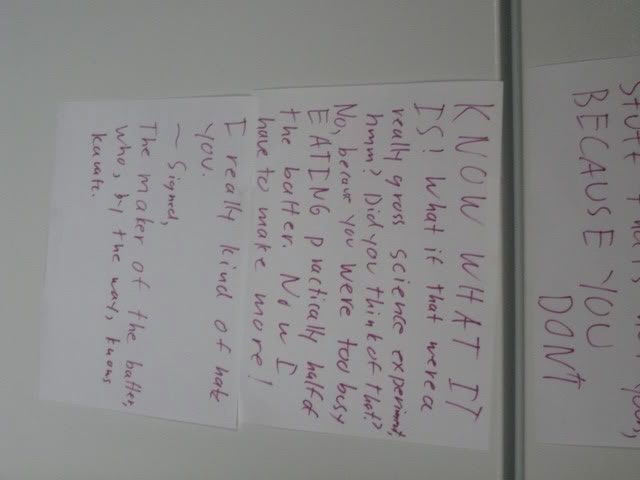 STUFF THAT'S NOT YOURS,
BECAUSE YOU
DON'T
KNOW WHAT IT
IS! What if that were a
really gross science experiment,
hmm? Did you think of that?
No, because you were too busy
EATING practically half of
the batter. Now I
have to make more!
I really kind of hate
you.
~ Signed,
The maker of the batter,
who, by the way, knows
karate.